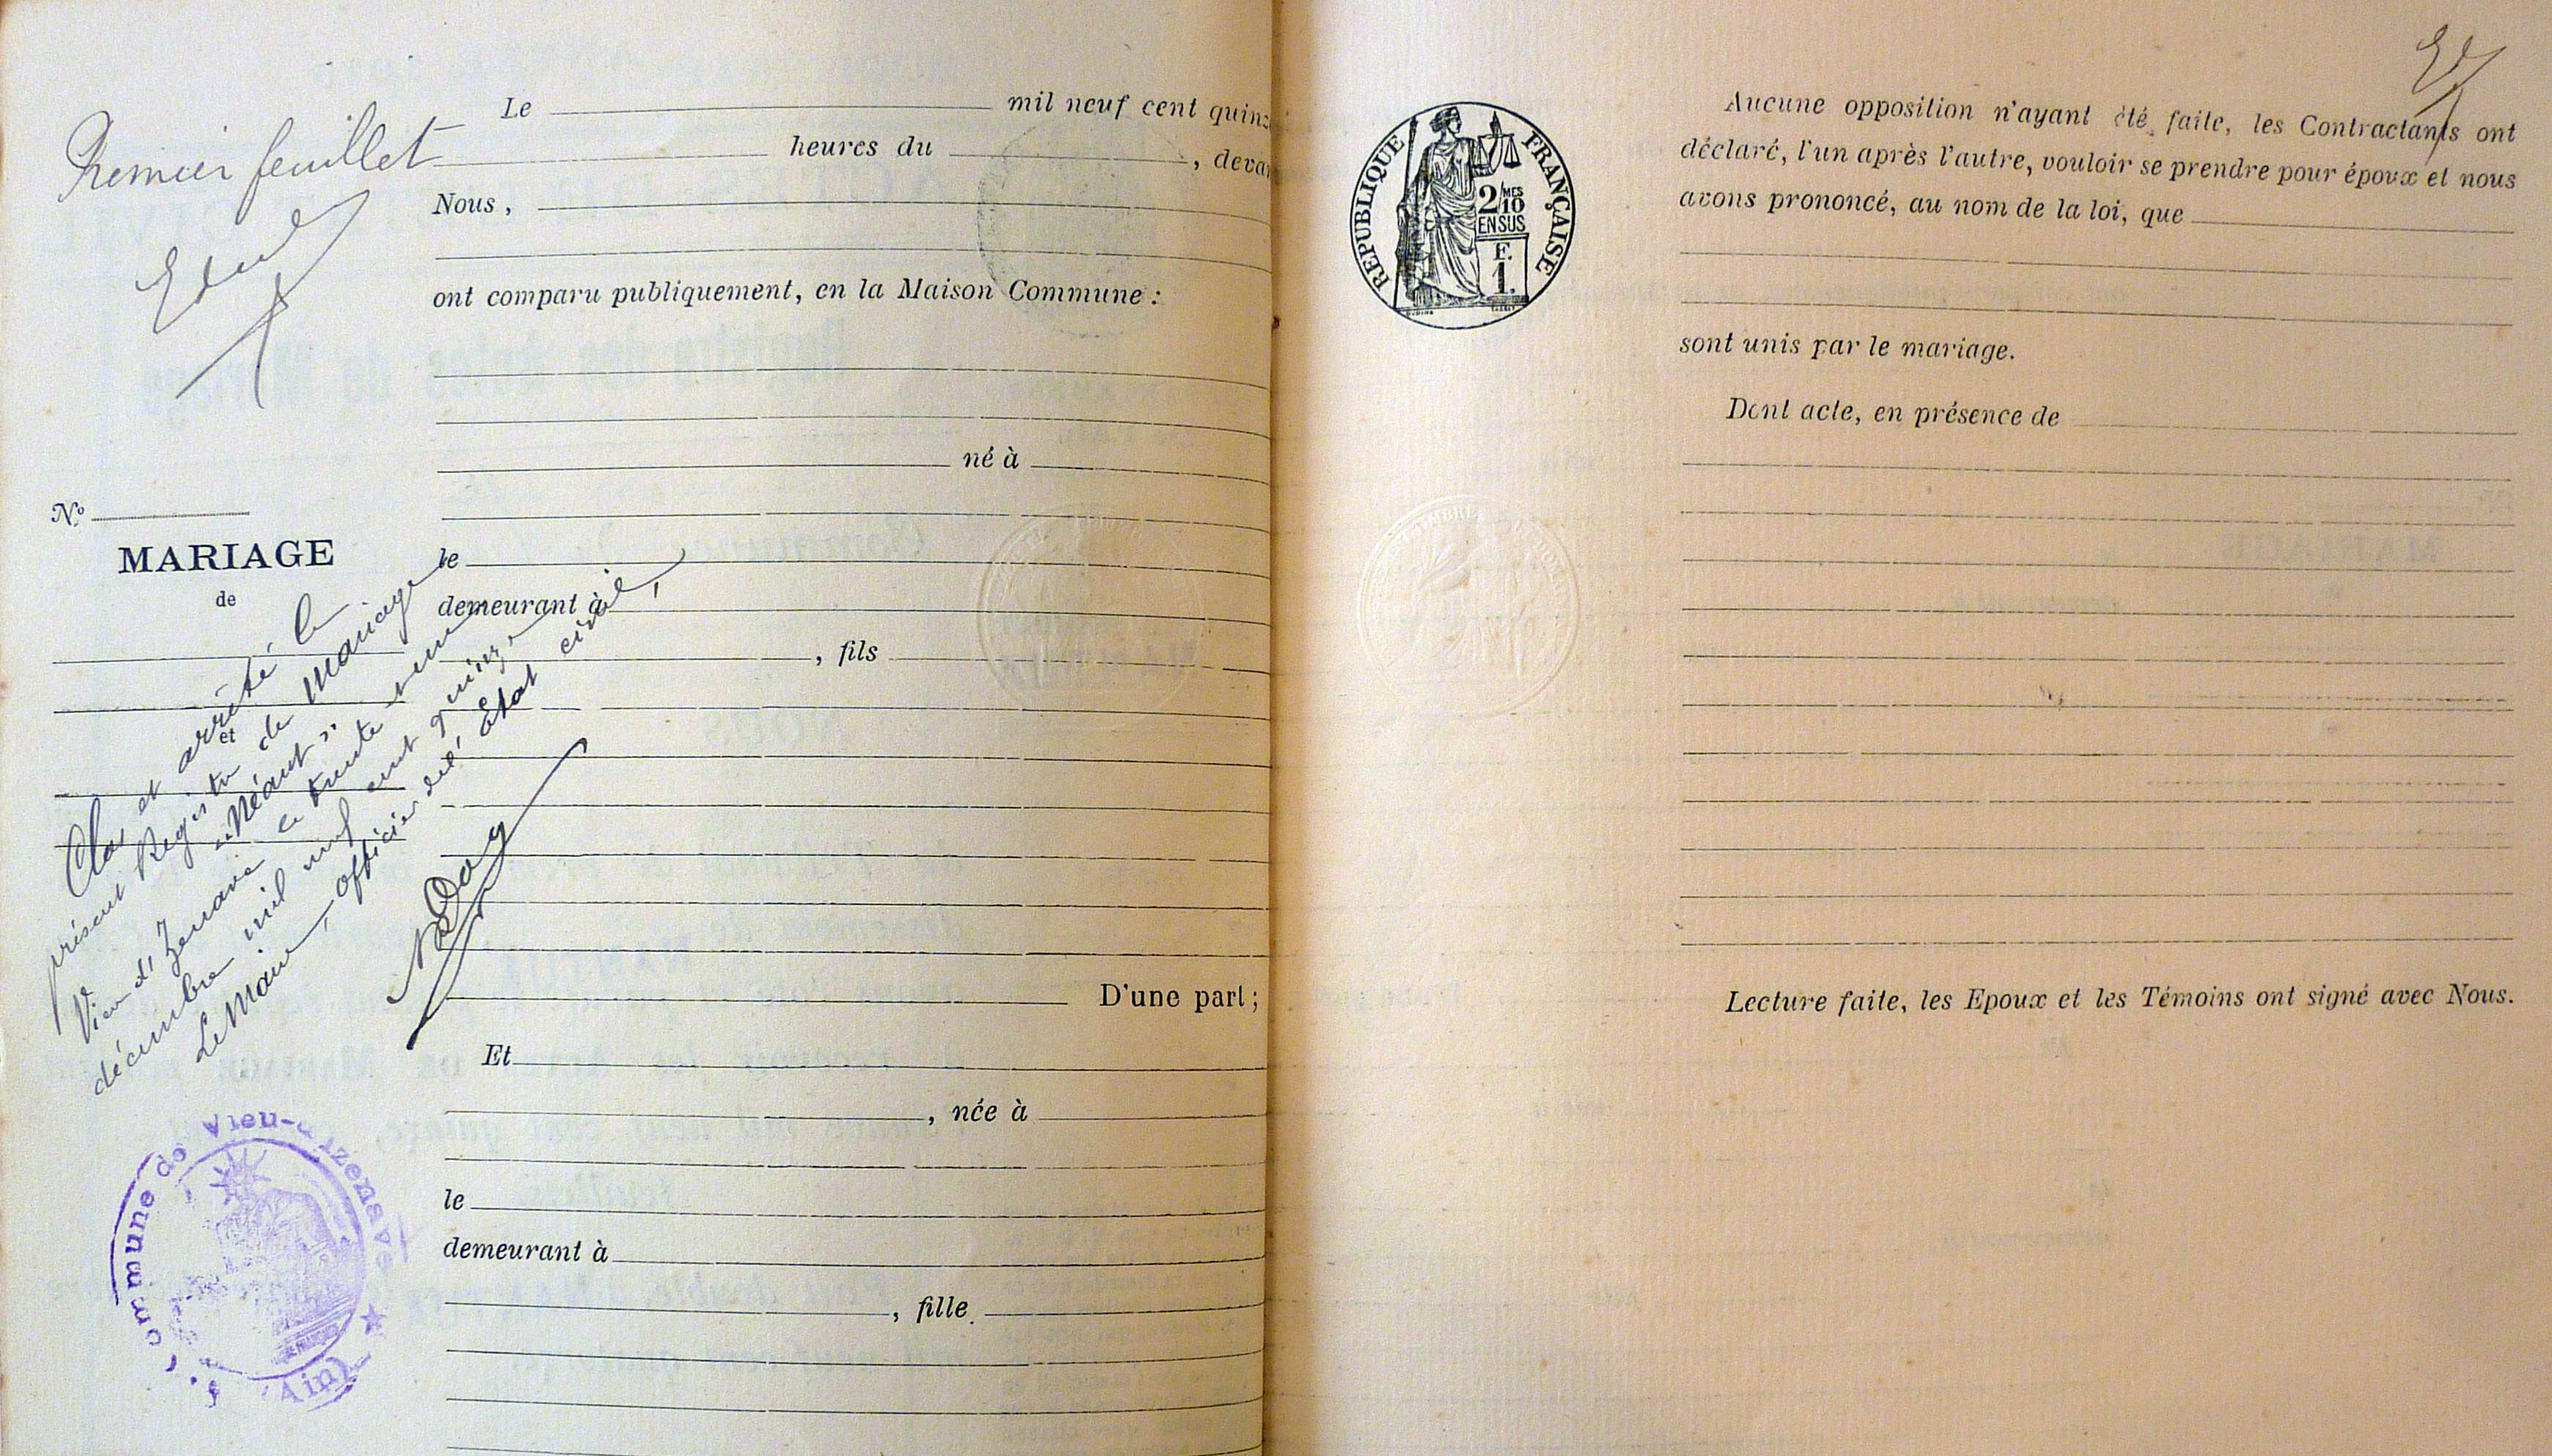 Premier feuillet
Le mil neuf cent quinz
heures du , devan
Nous ,
ont comparu publiquement, en la Maison Commune :
né à
No
MARIAGE
de
et
le
demeurant à
, fils
D'une part ;
Et
, née à
le
demeurant à
, fille
Clos et arrêté le
présent Registre de Mariage
"Néant"
Vieu d'Izenave le trente et un
décembre mil neuf cent quinze
Le Maire, officier de l'Etat civil,
Commune de Vieu-d'Izenave
(Ain)
REPUBLIQUE FRANÇAISE
2/MES
10
EN SUS
F.
1.
Aucune opposition n'ayant été faite, les Contractants ont
déclaré, l'un après l'autre, vouloir se prendre pour époux et nous
avons prononcé, au nom de la loi, que
sont unis par le mariage.
Dont acte, en présence de
Lecture faite, les Epoux et les Témoins ont signé avec Nous.